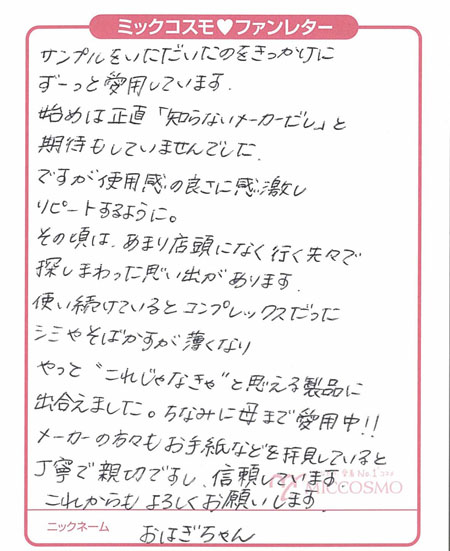 ミックコスモ♥ファンレター
サンプルをいただいたのをきっかけに
ずーっと愛用しています.
始めは正直「知らないメーカーだし」と
期待もしていませんでした.
ですが使用感の良さに感激し
リピートするように。
その頃は、あまり店頭になく行く先々で
探しまわった思い出があります.
使い続けているとコンプレックスだった
シミやそばかすが薄くなり
やっと"これじゃなきゃ"と思える製品に
出合えました。ちなみに母まで愛用中!!
メーカーの方々もお手紙などを拝見していると
丁寧で親切ですし、信頼しています.
No.1コスメ
MICCOSMO
これからもよろしくお願いします.
ニックネーム おはぎちゃん